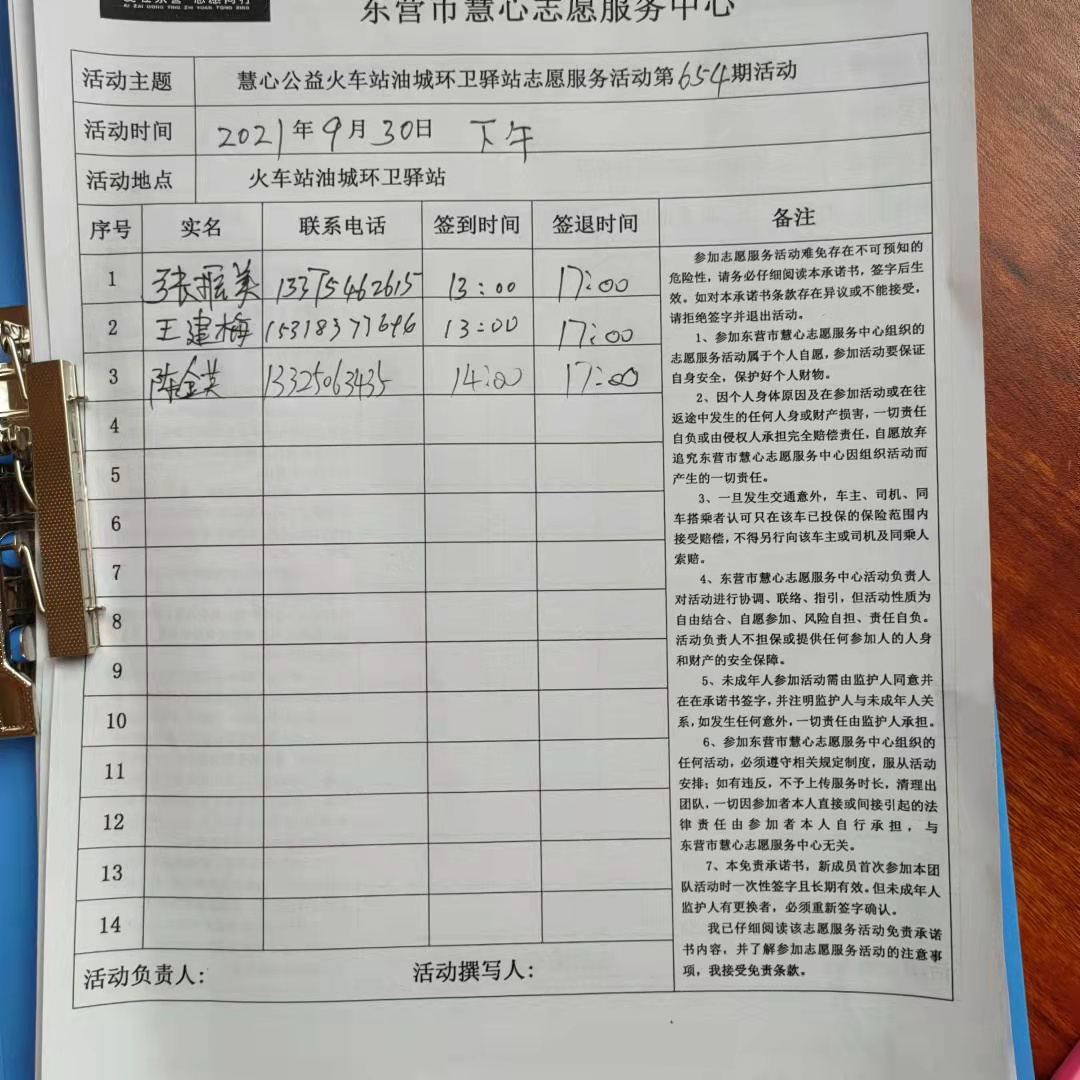 东营市慧心志愿服务中心
活动主题 慧心公益火车站油城环卫驿站志愿服务活动第654期活动
活动时间 2021年9月30日 下午
活动地点 火车站油城环卫驿站
序号 实名 联系电话 签到时间 签退时间 备注
1 张振美 13375462615 13:00 17:00
2 王建梅 15318377696 13:00 17:00
3 陈金英 13325063435 14:00 17:00
4
5
6
7
8
9
10
11
12
13
14
参加志愿服务活动难免存在不可预知的
危险性，请务必仔细阅读本承诺书，签字后生
效。如对本承诺书条款存在异议或不能接受，
请拒绝签字并退出活动。
1、参加东营市慧心志愿服务中心组织的
志愿服务活动属于个人自愿，参加活动要保证
自身安全，保护好个人财物。
2、因个人身体原因及在参加活动或在往
返途中发生的任何人身或财产损害，一切责任
自负或由侵权人承担完全赔偿责任，自愿放弃
追究东营市慧心志愿服务中心因组织活动而
产生的一切责任。
3、一旦发生交通意外，车主、司机、同
车搭乘者认可只在该车已投保的保险范围内
接受赔偿，不得另行向该车主或司机及同乘人
索赔。
4、东营市慧心志愿服务中心活动负责人
对活动进行协调、联络、指引，但活动性质为
自由结合、自愿参加、风险自担、责任自负。
活动负责人不担保或提供任何参加人的人身
和财产的安全保障。
5、未成年人参加活动需由监护人同意并
在在承诺书签字，并注明监护人与未成年人关
系，如发生任何意外，一切责任由监护人承担。
6、参加东营市慧心志愿服务中心组织的
任何活动，必须遵守相关规定制度，服从活动
安排；如有违反，不予上传服务时长，清理出
团队，一切因参加者本人直接或间接引起的法
律责任由参加者本人自行承担，与
东营市慧心志愿服务中心无关。
7、本免责承诺书，新成员首次参加本团
队活动时一次性签字且长期有效。但未成年人
监护人有更换者，必须重新签字确认。
我已仔细阅读该志愿服务活动免责承诺
书内容，并了解参加志愿服务活动的注意事
项，我接受免责条款。
活动负责人： 活动撰写人：